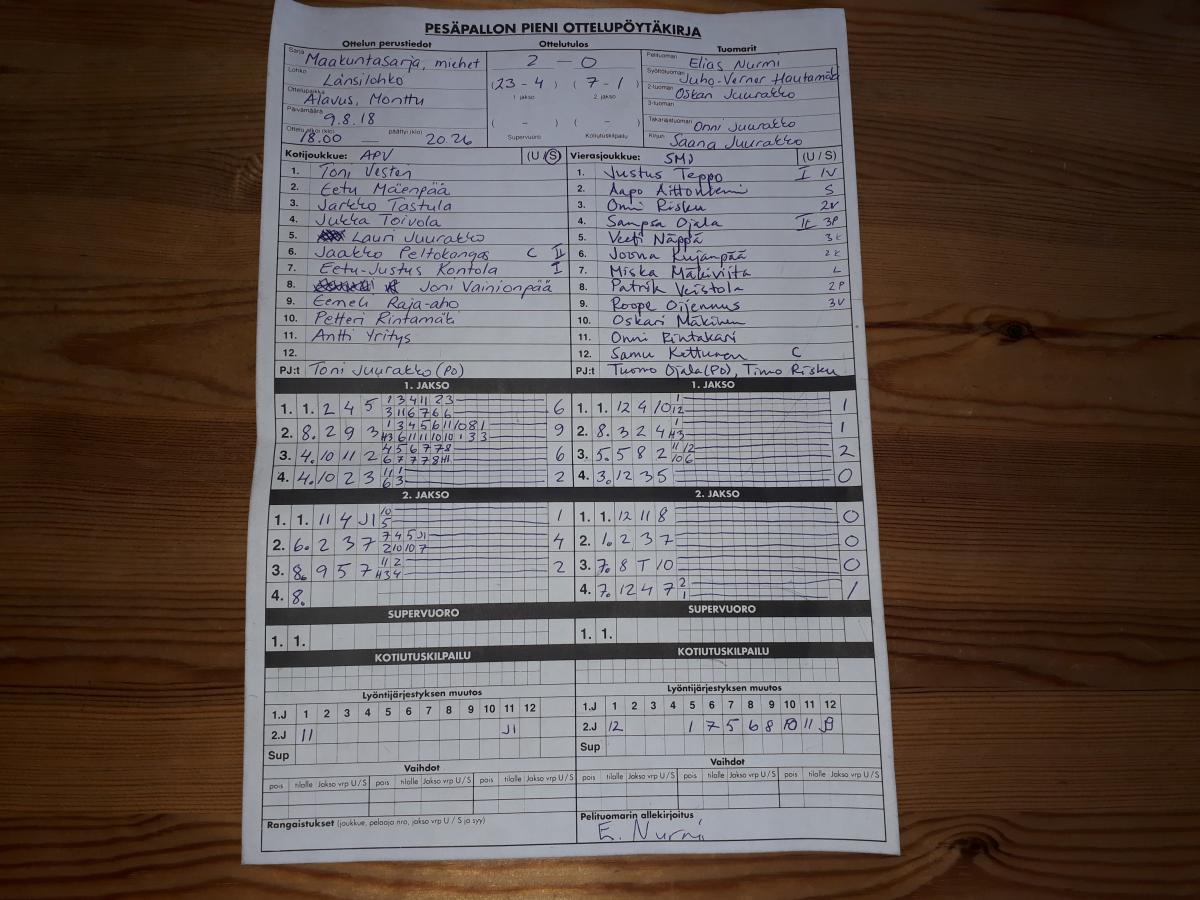 PESÄPALLON PIENI OTTELUPÖYTÄKIRJA
Ottelun perustiedot Ottelutulos Tuomarit
Sarja Maakuntasarja, miehet 2 - 0 Pelituomari Elias Nurmi
Lohko Länsilohko (23 - 4) (7 - 1) Syöttötuomari Juho-Verner Hautamäki
Ottelupaikka Alavus, Monttu 1 jakso 2. jakso 2-tuomari Oskari Juurakko
Päivämäärä 9.8.18 ( - ) ( - ) 3-tuomari
Ottelu alkoi (klo) 18.00 päättyi (klo) 20.26 Supervuoro Kotiutuskilpailu Takarajatuomari Onni Juurakko
Kirjuri Saana Juurakko
Kotijoukkue: APV (U/S) Vierasjoukkue: SMJ (U/S)
1. Toni Vesteri 1. Justus Teppo I 1V
2. Eetu Mäenpää 2. Aapo S
3. Jarkko Tastula 3. Onni Risku 2V
4. Jukka Toivola 4. Sampsa Ojala II 3P
5. Lauri Juurakko 5. Veeti Näppä 3K
6. Jaakko Peltokangas C II 6. Joona Kujanpää 2K
7. Eetu-Justus Kontola I 7. Miska Mäkiviita L
8. Joni Vainionpää 8. Patrik Veistola 2P
9. Eemeli Raja-aho 9. Roope Oijennus 3V
10. Petteri Rintamäki 10. Oskari Mäkinen
11. Antti Yritys 11. Onni Rintakari
12. 12. Samu Kettunen C
PJ:t Toni Juurakko (PO) PJ:t Tuomo Ojala (PO), Timo Risku
1. JAKSO 1. JAKSO
1. 1. 2 4 5 1 3 4 11 2 3 6 1. 1. 12 9 10 1 1
3 11 6 7 6 6 12
2. 8. 2 9 3 1 3 4 5 6 11 10 8 1 9 2. 8. 3 2 4 1 1
H3 6 11 11 10 10 1 3 3 H3
3. 4. 10 11 2 4 5 6 7 7 8 6 3. 5. 5 8 2 11 12 2
6 7 7 7 8 H1 10 6
4. 4. 10 2 3 11 1 2 4. 3. 12 3 5 0
6 3
2. JAKSO 2. JAKSO
1. 1. 11 4 J1 10 1 1. 1. 12 11 8 0
5
2. 6. 2 3 7 7 4 5 J1 4 2. 1. 2 3 7 0
2 10 10 7
3. 8. 9 5 7 11 2 2 3. 7. 8 T 10 0
H3 4
4. 8. 4. 7. 12 4 7 2 1
1
SUPERVUORO SUPERVUORO
1. 1. 1. 1.
KOTIUTUSKILPAILU KOTIUTUSKILPAILU
Lyöntijärjestyksen muutos Lyöntijärjestyksen muutos
1.J 1 2 3 4 5 6 7 8 9 10 11 12 1.J 1 2 3 4 5 6 7 8 9 10 11 12
2.J 11 J1 2.J 12 1 7 5 6 8 10 11 9
Sup Sup
Vaihdot Vaihdot
pois tilalle Jakso vrp U/S pois tilalle Jakso vrp U/S pois tilalle Jakso vrp U/S pois tilalle Jakso vrp U/S pois tilalle Jakso vrp U/S pois tilalle Jakso vrp U/S
Rangaistukset (joukkue, pelaaja nro, jakso vrp U/S ja syy) Pelituomarin allekirjoitus
E. Nurmi